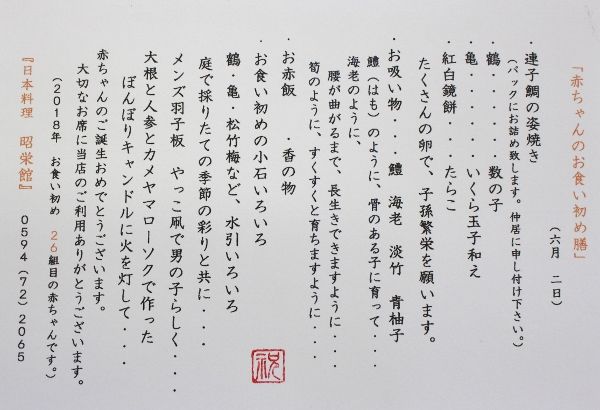 「赤ちゃんのお食い初め膳」
(六月 二日)
・連子鯛の姿焼き
(パックにお詰め致します。仲居に申し付け下さい。)
・鶴・・・・・・数の子
・亀・・・・・・いくら玉子和え
・紅白鏡餅・・・たらこ
たくさんの卵で、子孫繁栄を願います。
・お吸い物・・・鱧 海老 淡竹 青柚子
鱧(はも)のように、骨のある子に育って・・・
海老のように、
腰が曲がるまで、長生きできますように・・・
筍のように、すくすくと育ちますように・・・
・お赤飯 ・香の物
・お食い初めの小石いろいろ
鶴・亀・松竹梅など、水引いろいろ
庭で採りたての季節の彩りと共に・・・
メンズ羽子板 やっこ凧で男の子らしく・・・
大根と人参とカメヤマローソクで作った
ぼんぼりキャンドルに火を灯して・・・
赤ちゃんのご誕生おめでとうございます。
大切なお席に当店のご利用ありがとうございます。
(2018年 お食い初め 26組目の赤ちゃんです。)
『日本料理 昭栄館』 0594(72)2065
祝